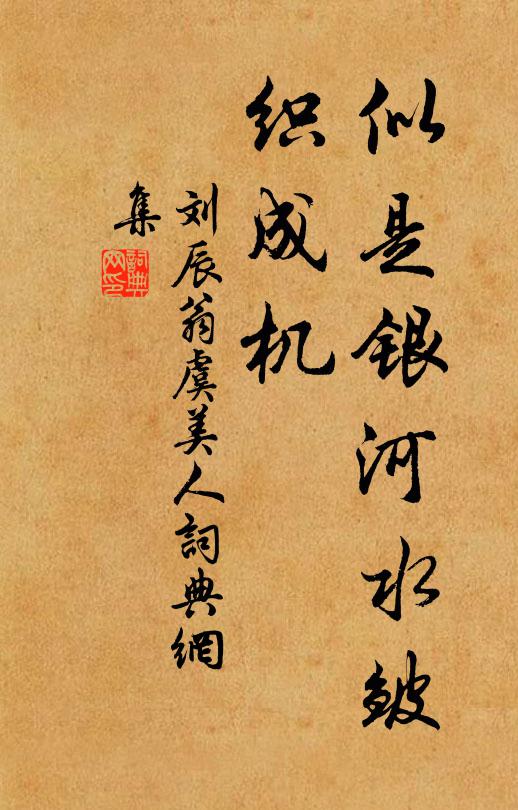 似是银河水皱
织成机
刘辰翁虞美人詞典網
集
詞典
网印